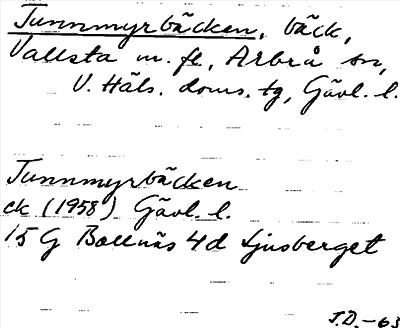 Tunnmyrbäcken, bäck,
Vallsta m. fl., Arbrå sn,
V. Häls. doms. tg, Gävl. l.
Tunnmyrbäcken
ck (1958) Gävl. l.
15 G Bollnäs 4d Ljusberget
J.D.-63